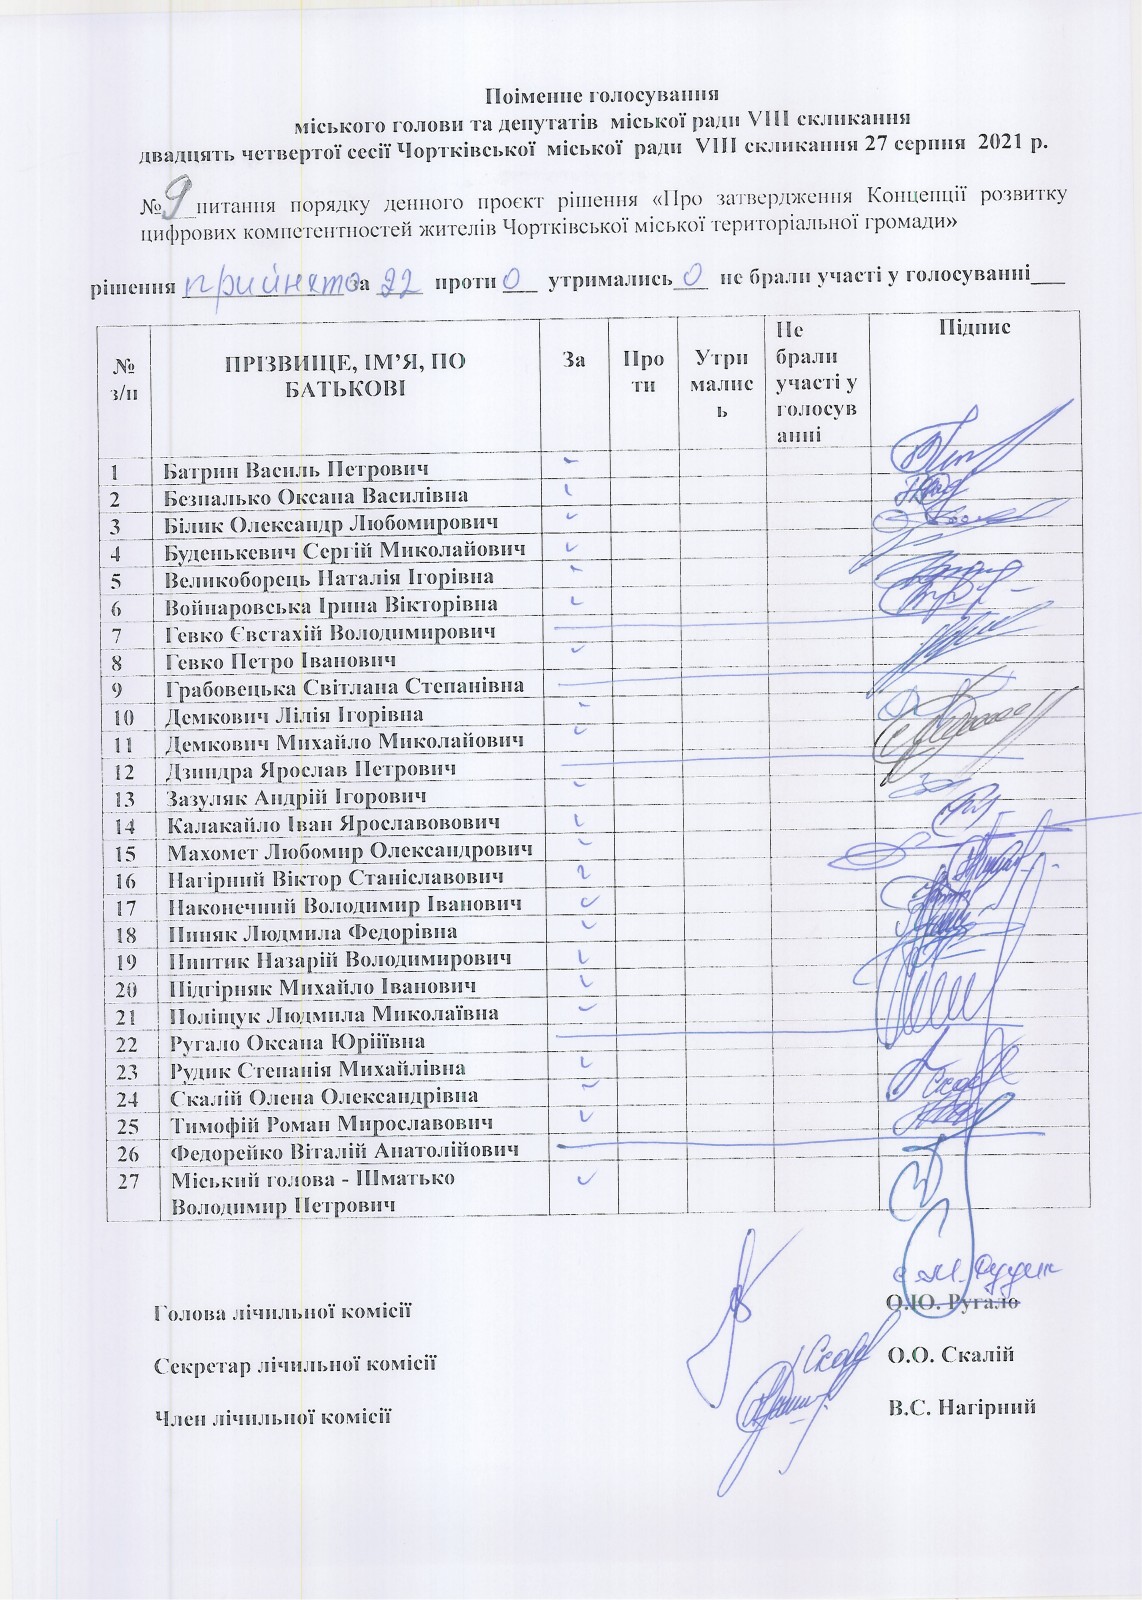 Поіменне голосування
міського голови та депутатів міської ради VIII скликання
двадцять четвертої сесії Чортківської міської ради VIII скликання 27 серпня 2021 р.
№ 9 питання порядку денного проєкт рішення «Про затвердження Концепції розвитку
цифрових компетентностей жителів Чортківської міської територіальної громади»
рішення прийнято за 22 проти 0 утримались 0 не брали участі у голосуванні___
№ з/п ПРІЗВИЩЕ, ІМ’Я, ПО БАТЬКОВІ За Проти Утрималис ь Не брали участі у голосуванні Підпис
1 Батрин Василь Петрович
2 Безпалько Оксана Василівна
3 Білик Олександр Любомирович
4 Буденькевич Сергій Миколайович
5 Великоборець Наталія Ігорівна
6 Войнаровська Ірина Вікторівна
7 Гевко Євстахій Володимирович
8 Гевко Петро Іванович
9 Грабовецька Світлана Степанівна
10 Демкович Лілія Ігорівна
11 Демкович Михайло Миколайович
12 Дзиндра Ярослав Петрович
13 Зазуляк Андрій Ігорович
14 Калакайло Іван Ярославовович
15 Махомет Любомир Олександрович
16 Нагірний Віктор Станіславович
17 Наконечний Володимир Іванович
18 Пиняк Людмила Федорівна
19 Пинтик Назарій Володимирович
20 Підгірняк Михайло Іванович
21 Поліщук Людмила Миколаївна
22 Ругало Оксана Юріїівна
23 Рудик Степанія Михайлівна
24 Скалій Олена Олександрівна
25 Тимофій Роман Мирославович
26 Федорейко Віталій Анатолійович
27 Міський голова - Шматько
Володимир Петрович
Голова лічильної комісії О.Ю. Ругало
Секретар лічильної комісії О.О. Скалій
Член лічильної комісії В.С. Нагірний